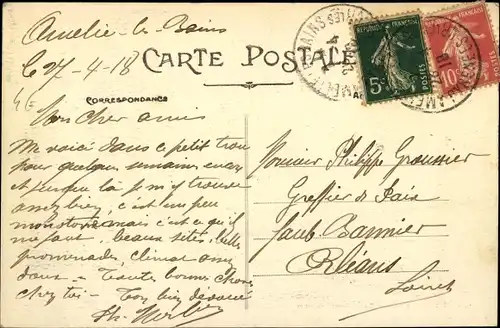 Amelie-les-Bains
le 27-4-18
CARTE POSTALE
CORRESPONDANCE
Mon cher ami
Me voici dans ce petit trou
pour quelques semaines encore
et jusque là je m'y trouve
assez bien, c'est un peu
monotone mais c'est ce qu'il
me faut, beaux sites, belles
promenades, climat assez
doux - Toutes bonnes choses
chez toi - Ton bien dévoué
Monsieur Philippe Groussier
Greffier de Paix
Faub Bannier
Orléans
Loiret
REPUBLIQUE FRANÇAISE
5c
POSTES
10c
POSTES